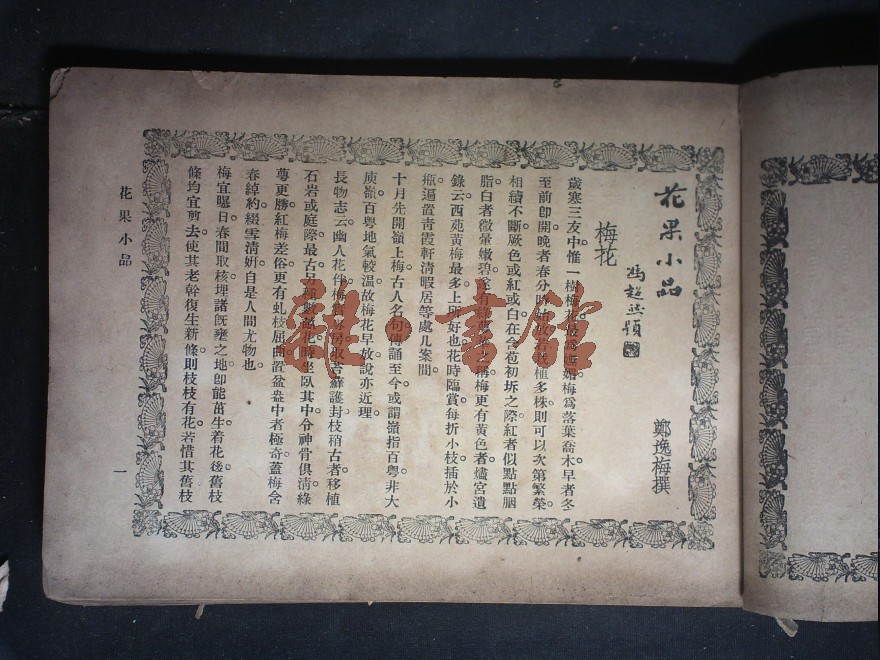 花果小品
馮超然題
鄭逸梅撰
梅花
歲寒三友中。惟一樹梅花。最爲嫵媚。梅爲落葉喬木。早者冬
至前卽開。晚者春分時始放。若栽植多株。則可以次第繁榮。
相續不斷。厥色或紅或白。在含苞初坼之際。紅者似點點胭
脂。白者微暈嫩碧。遂有綠萼華之稱。梅更有黃色者。燼宮遺
錄云。西苑黃梅最多。上所好也。花時臨賞。每折小枝。插於小
瓶。遍置青霞軒清暇居等處几案間。
十月先開嶺上梅。古人名句。傳誦至今。或謂嶺指百粤。非大
庾嶺。百粤地氣較温。故梅花早放。說亦近理。
長物志云。幽人花伴。梅實專房。取苔蘚護封。枝稍古者。移植
石岩或庭際。最古。另種數畝。花時坐臥其中。令神骨俱淸。綠
萼更勝。紅梅差俗。更有虬枝屈曲。置盆盎中者。極奇。蓋梅舍
春綽約。綴雪清姸。自是人間尤物也。
梅宜曬日。春間取核。埋諸旣壅之地。卽能茁生。着花後。舊枝
條均宜剪去。使其老幹復生新條。則枝枝有花。若惜其舊枝
花果小品
一
雜·書館